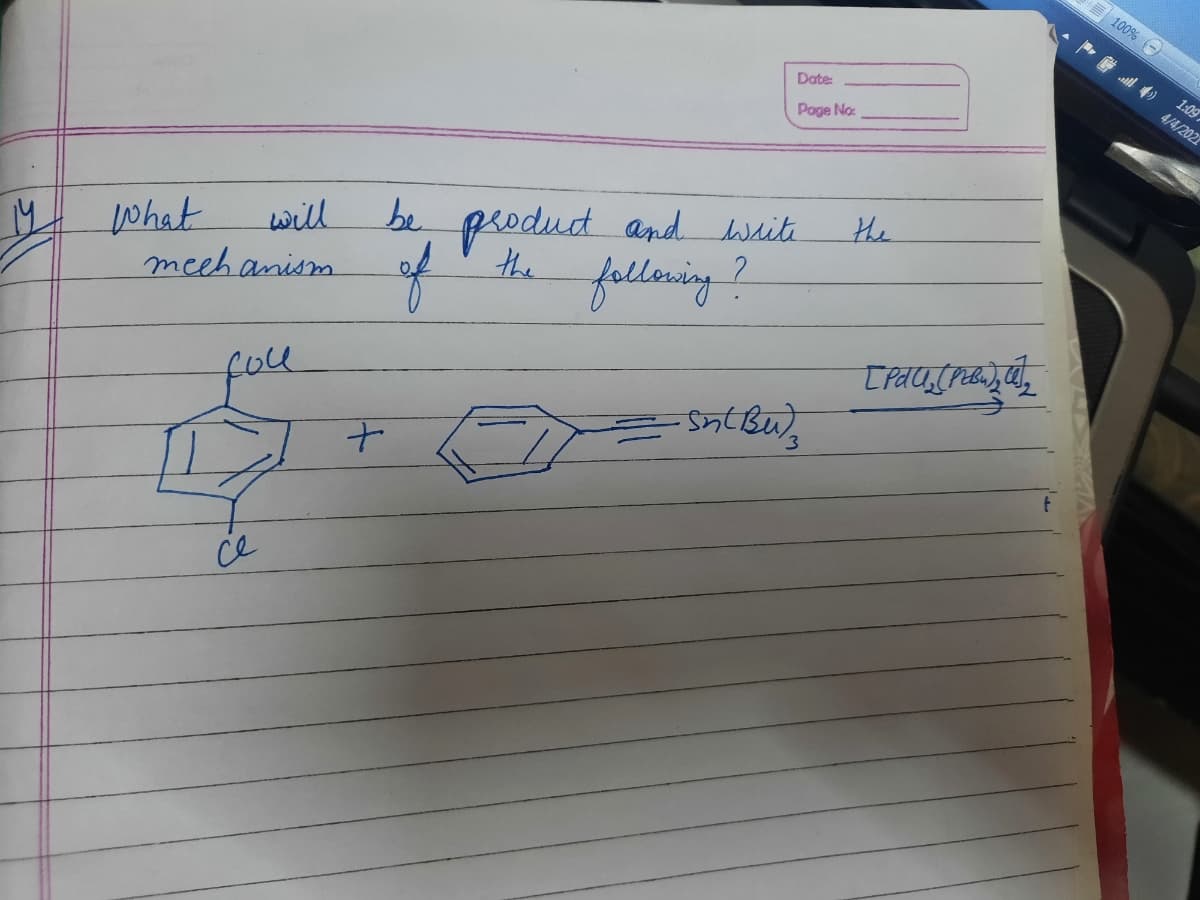 100%
1:09
4/4/202
Date:
Page No:
14 What will be product and write the
mechanism of the following ?
COCl
[PdCl2(PtBu)2Cl]2
+
Sn(Bu)3
Cl